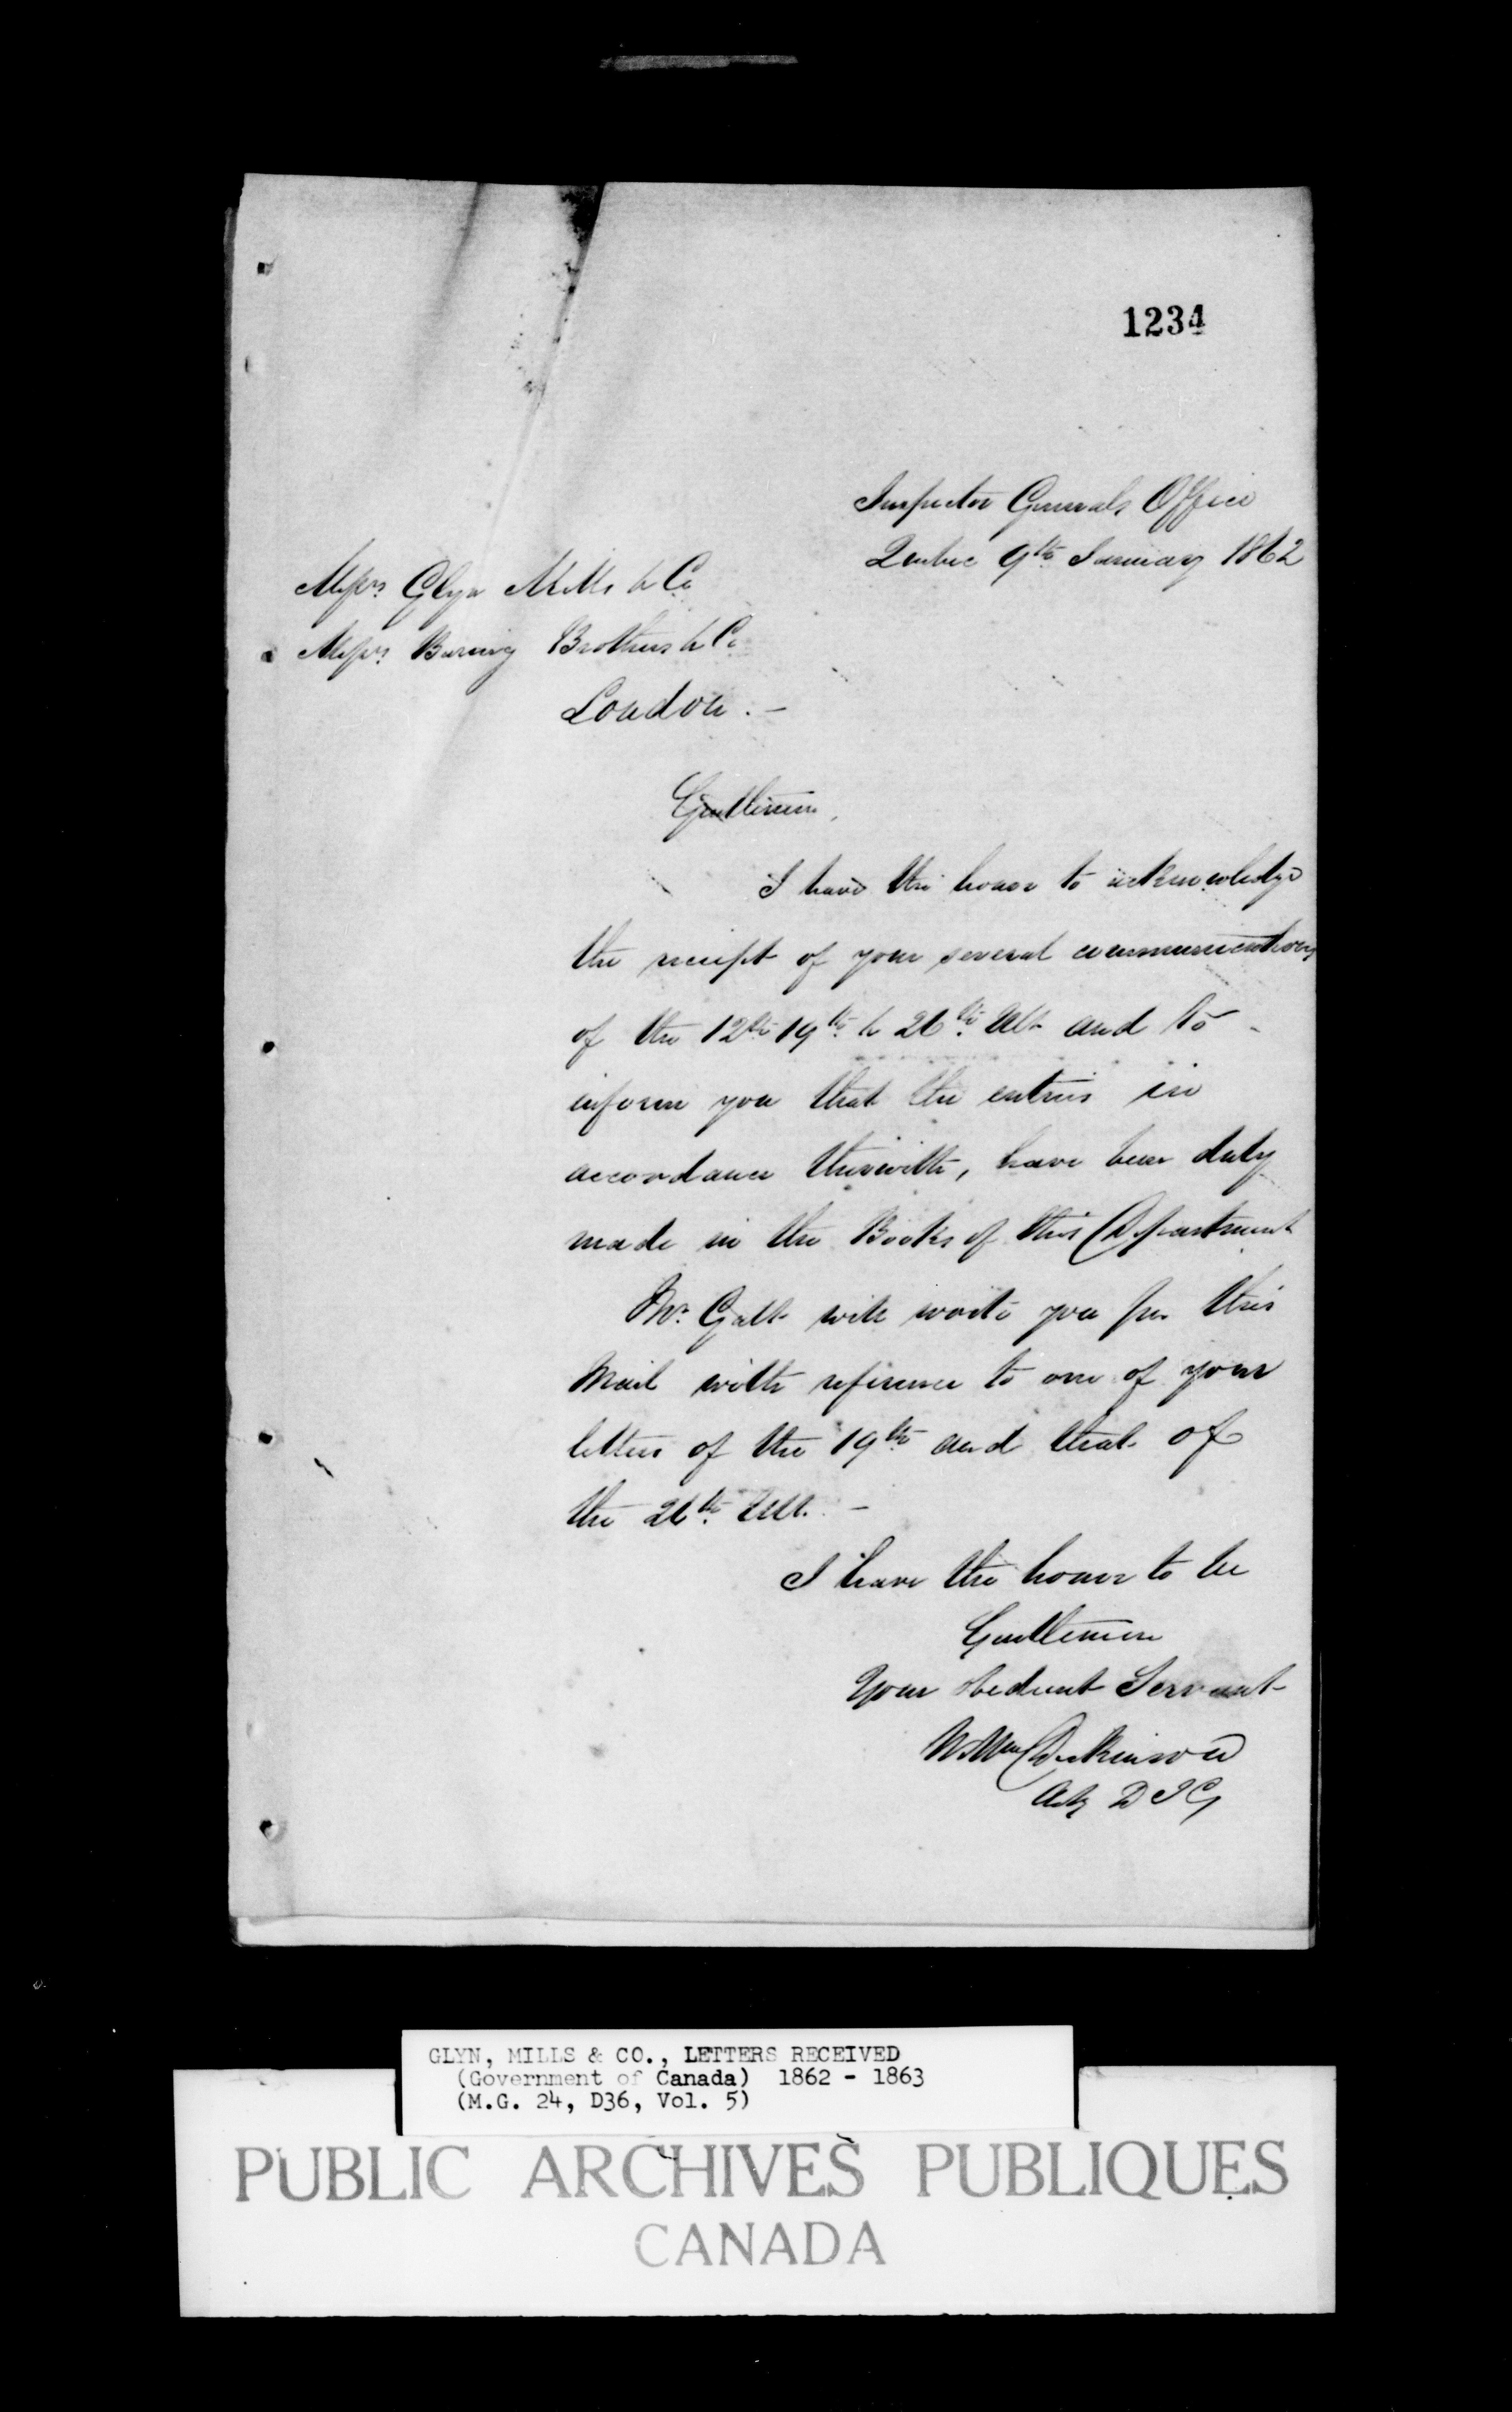 1234
Inspector Generals Office
Quebec 9th January 1862
Messrs Glyn Mills & Co
Messrs Baring Brothers & Co
London. -
Gentlemen,
I have the honor to acknowledge
the receipt of your several communications
of the 12th 19th & 26th Ult and to
inform you that the entries in
accordance therewith, have been duly
made in the Books of this Department
Mr. Galt will write you per this
Mail with reference to one of your
letters of the 19th and that of
the 26th Ult. -
I have the honor to be
Gentlemen
Your obedient Servant
Dickinson
Actg D I G
GLYN, MILLS & CO., LETTERS RECEIVED
(Government of Canada) 1862 - 1863
(M.G. 24, D36, Vol. 5)
PUBLIC ARCHIVES PUBLIQUES
CANADA